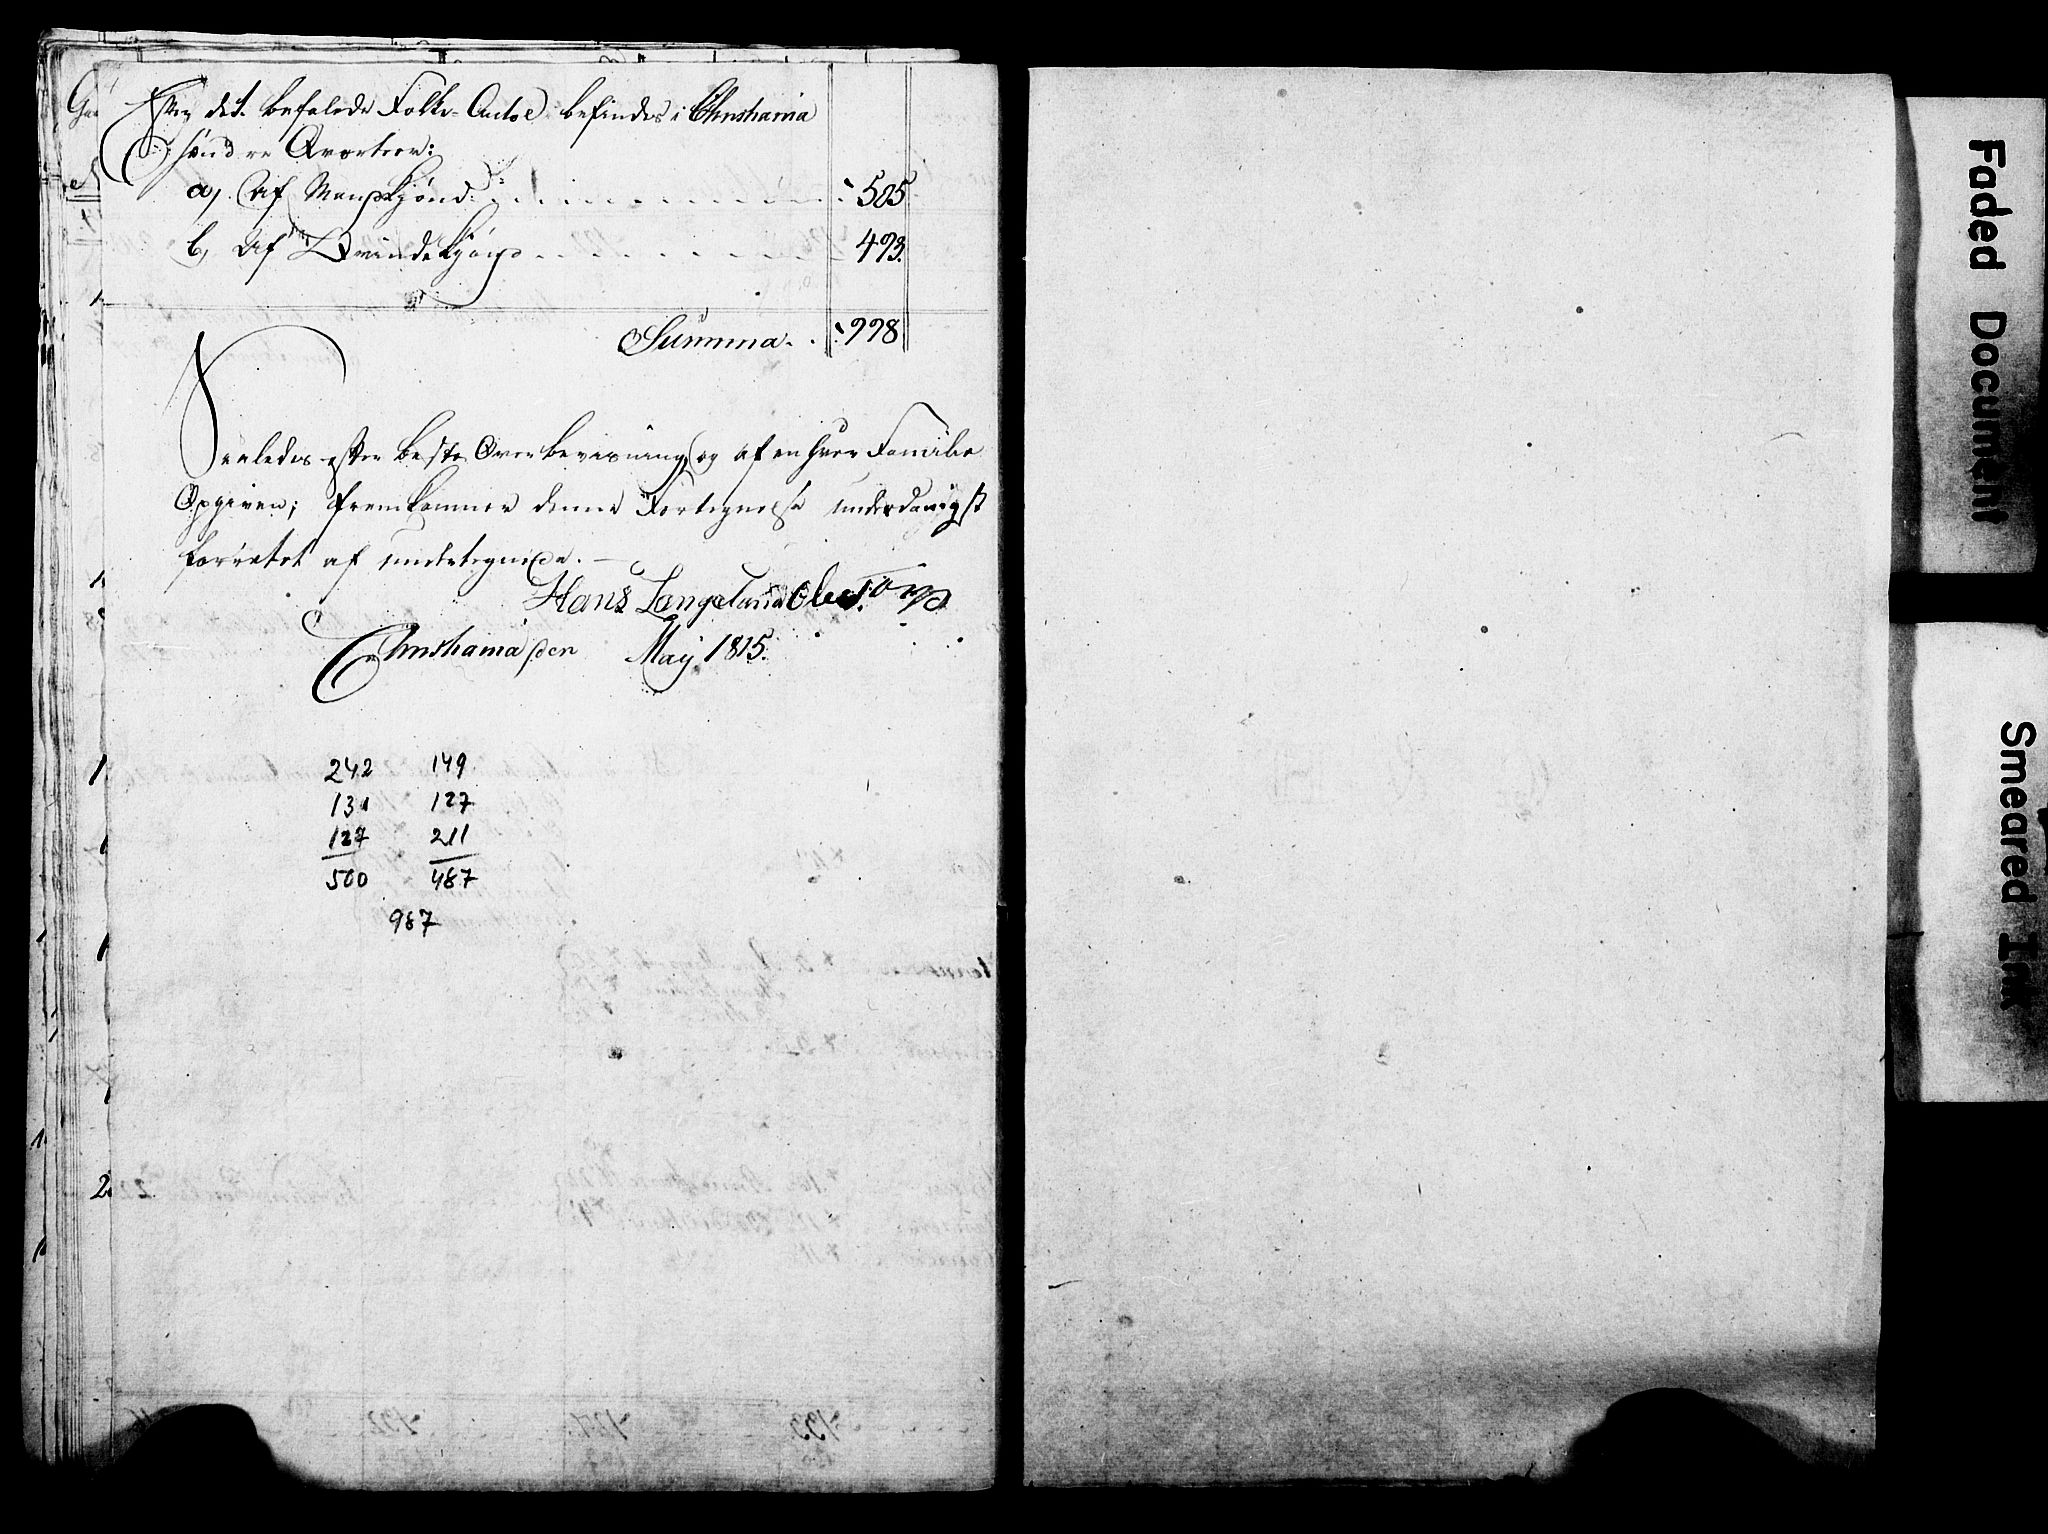 Efter det befalede Folke-Antal befindes i Christiania
søndre Qvarteer:
a, Af Mandkjønd 505
b, Af Qvindekjønd 493.
Summa. 998
Saaledes efter beste Overbevisning og af enhver Familie
Opgiven; fremkommer denne Fortegnelse underdanigst
forrettet af undertegnede.
Hans Langeland
Christiania den May 1815.
242 149
131 127
127 211
500 487
987
Faded Document
Smeared Ink